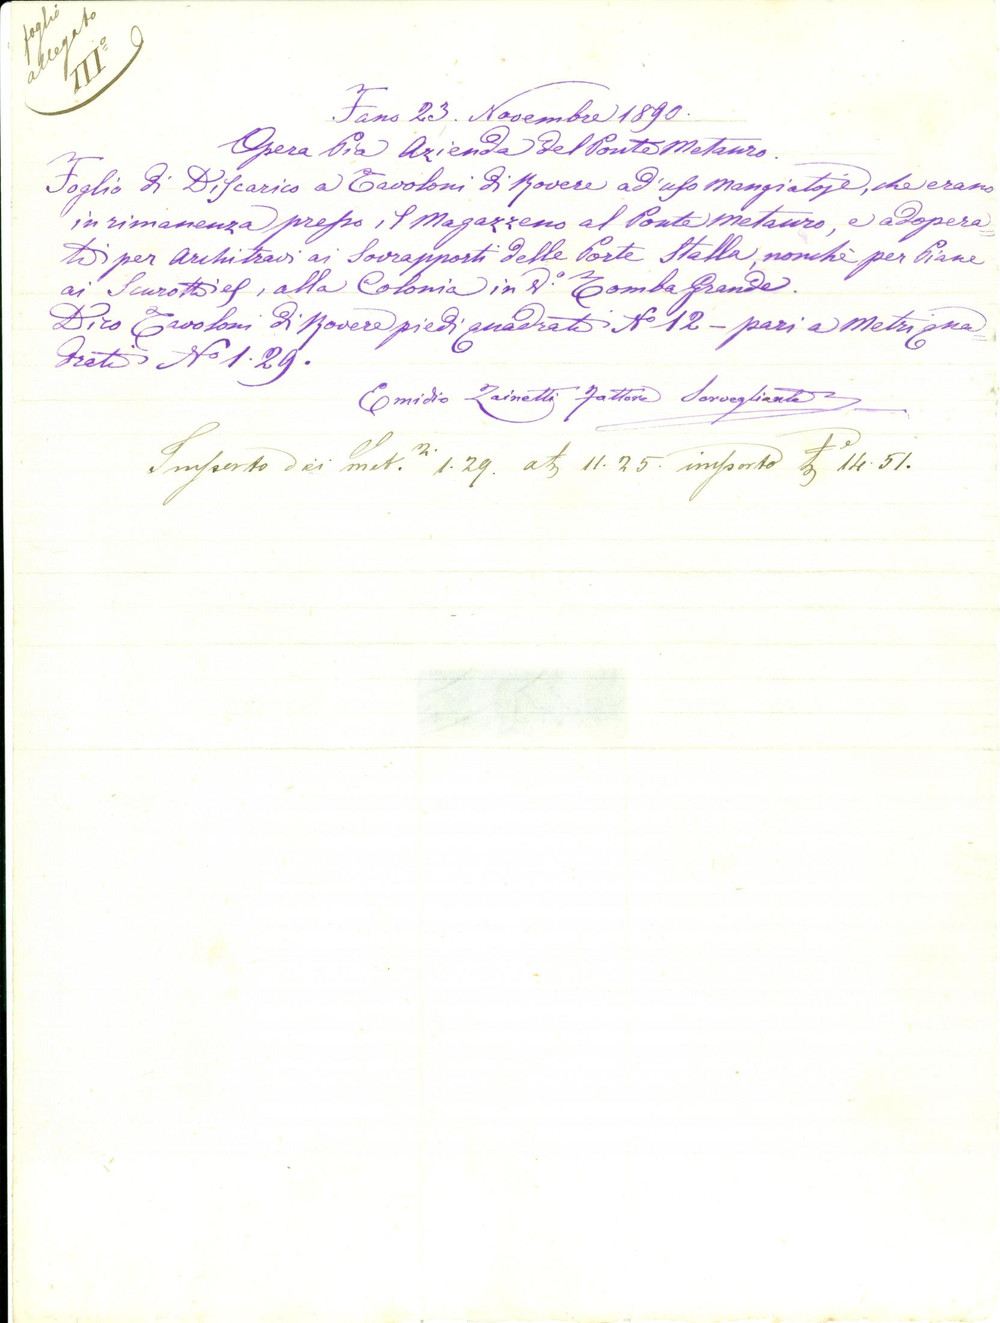 foglio
allegato
III°
Fano 23. Novembre 1890.
Opera Pia Azienda del Ponte Metauro.
Foglio di Discarico a Tavoloni di Rovere ad'uso Mangiatoje, che erano
in rimanenza presso il Magazzeno al Ponte Metauro, e adopera=
ti per Architravi ai Sovrapporti delle Porte Stalla, nonchè per Piane
ai Scurotti, alla Colonia in V.° Tomba Grande.
Dico Tavoloni di Rovere piedi quadrati N° 12 - pari a Metri qua=
drati N° 1.29.
Emidio Zainetti Fattore Sorvegliante
Importo dei met. 1.29. a £ 11.25. importo £ 14.51.